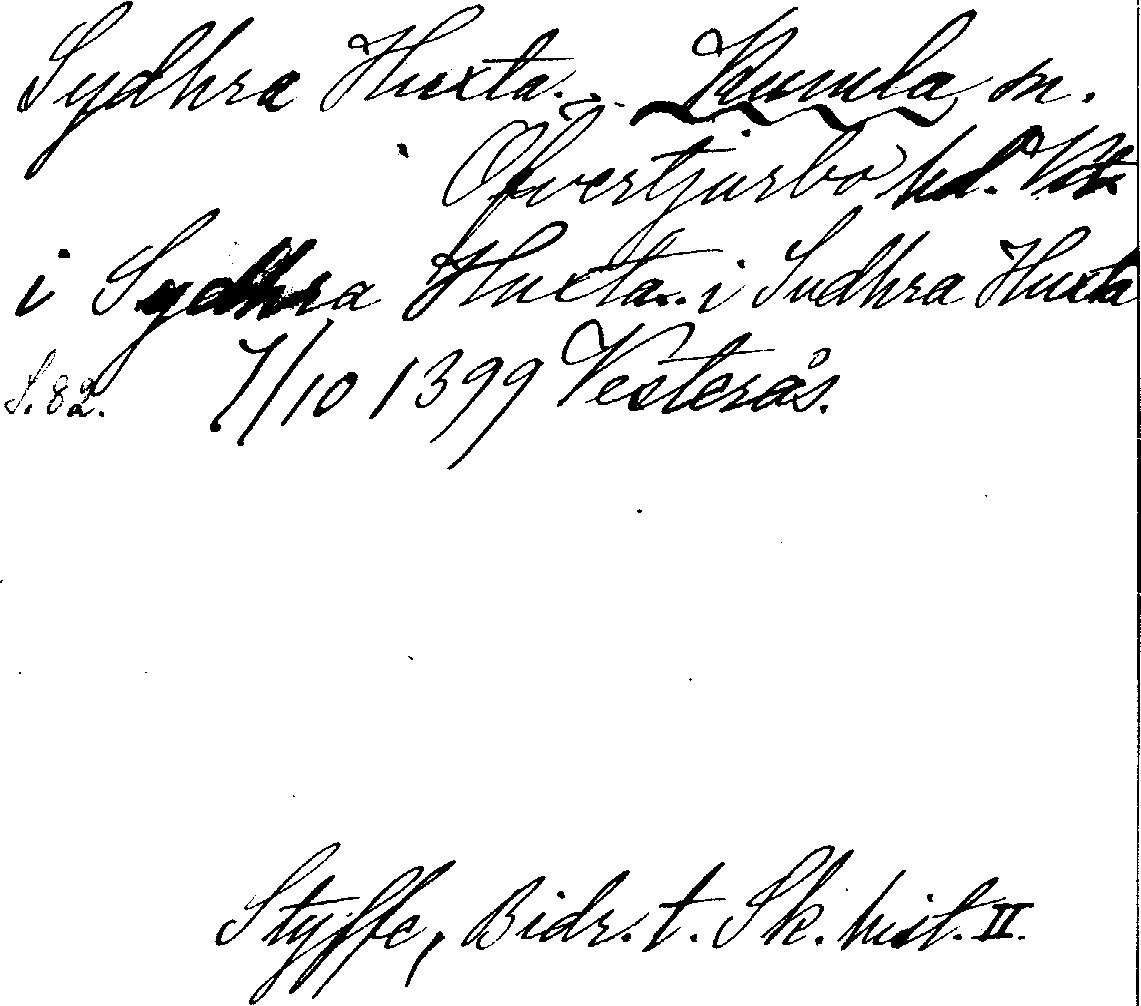 Sydhra Huxta. Kumla sn.
Öfvertjurbo hd. Vstm
i Sydhra Huxta.. i Sudhra Huxta
S. 82. 7/10 1399 Vesterås.
Styffe, Bidr. t. Sk. hist. II.